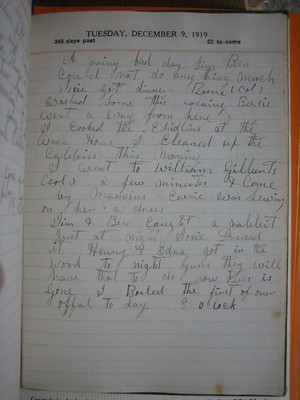 TUESDAY, DECEMBER 9, 1919
343 days past 22 to come
A rainy bad day Jim Ben
could not do any thing much
Josie got dinner (Col)
washed some this evening Bessie
went a way from here
I Cooked the Chidlins at the
Wash House I Cleaned up the
this Morning
I went to William Gibbents
(Col) a few minutes & Come
by Mansons Carrie was Sewing
on her a dress
Jim & Ben Caught a rabbit
Just at night Josie
it Henry & Edna got in the
Wood to night guess they will
have that to do now Ben is
gone I Boiled the first of our
offal to day 8 o'clock